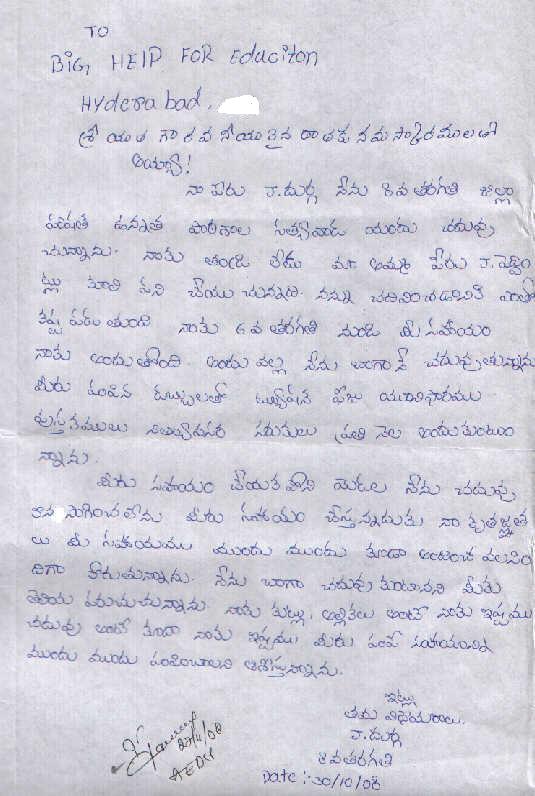 TO
BIG HELP FOR Educiton
HYderabad.
శ్రీయుత గౌరవనీయులైన దాతకు నమస్కారములతో
అయ్యా!
నా పేరు J.దుర్గ నేను 8వ తరగతి జిల్లా
పరిషత్ ఉన్నత పాఠశాల సత్యవాడ యందు చదువు
చున్నాను. నాకు తండ్రి లేడు మా అమ్మ పేరు J.
కూలి పని చేయు చున్నది. నన్ను చదివించడానికి ఎంతో
కష్ట పడుతుంది నాకు 6వ తరగతి నుండి మీ సహాయం
నాకు అందుతోంది. అందు వల్ల నేను బాగానే చదువుతున్నాను
మీరు పంపిన డబ్బులతో ట్యూషన్ ఫీజు యూనిఫారము
పుస్తకములు నిత్యావసర సరుకులు ప్రతి నెల అందుకుంటు
న్నాను.
మీరు సహాయం చేయక పోతే నేను చదువు
కొన సాగించలేను మీరు సహాయం చేస్తున్నందుకు నా కృతజ్ఞత
లు మీ సహాయము ముందు ముందు కూడా అందించ వలసిం
దిగా కోరుతున్నాను. నేను బాగా చదువుకుంటానని మీకు
తెలియ పరుచుచున్నాను. నాకు కుట్లు, అల్లికలు అంటే నాకు ఇష్టము
చదువు అంటే కూడా నాకు ఇష్టము మీరు పంపే సహాయాన్ని
ముందు ముందు పంపించాలని ఆశిస్తున్నాను.
ఇట్లు
తమ విధేయురాలు.
J.దుర్గ
8వతరగతి
Date: 30/10/08